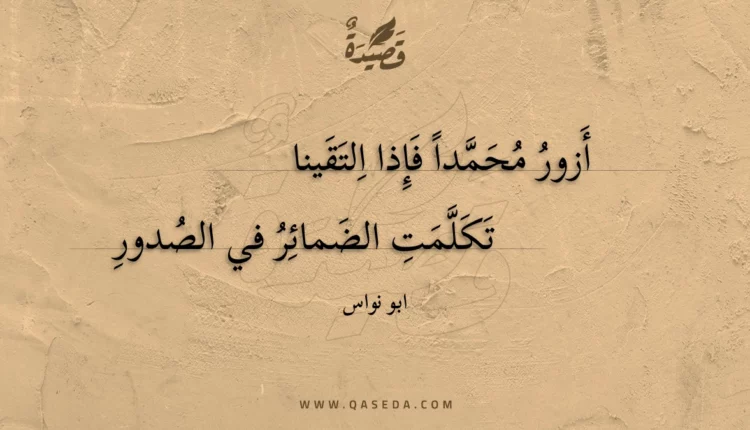 قَصِيدَةٌ
أَزورُ مُحَمَّداً فَإِذا اِلتَقَينا
تَكَلَّمَتِ الضَمائِرُ في الصُدورِ
ابو نواس
WWW.QASEDA.COM